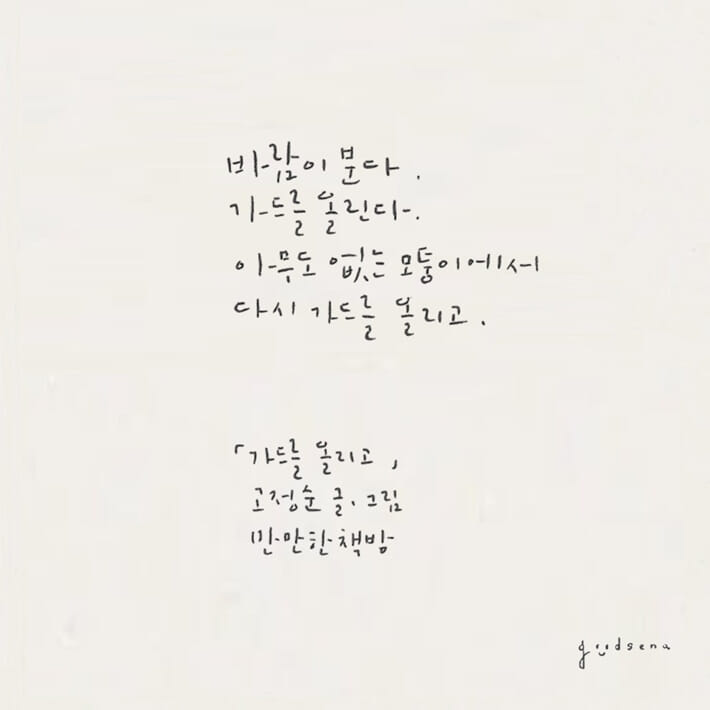 바람이 분다.
가드를 올린다.
아무도 없는 모퉁이에서
다시 가드를 올리고.
「가드를 올리고」
고정순 글·그림
만만한책방
goodsena